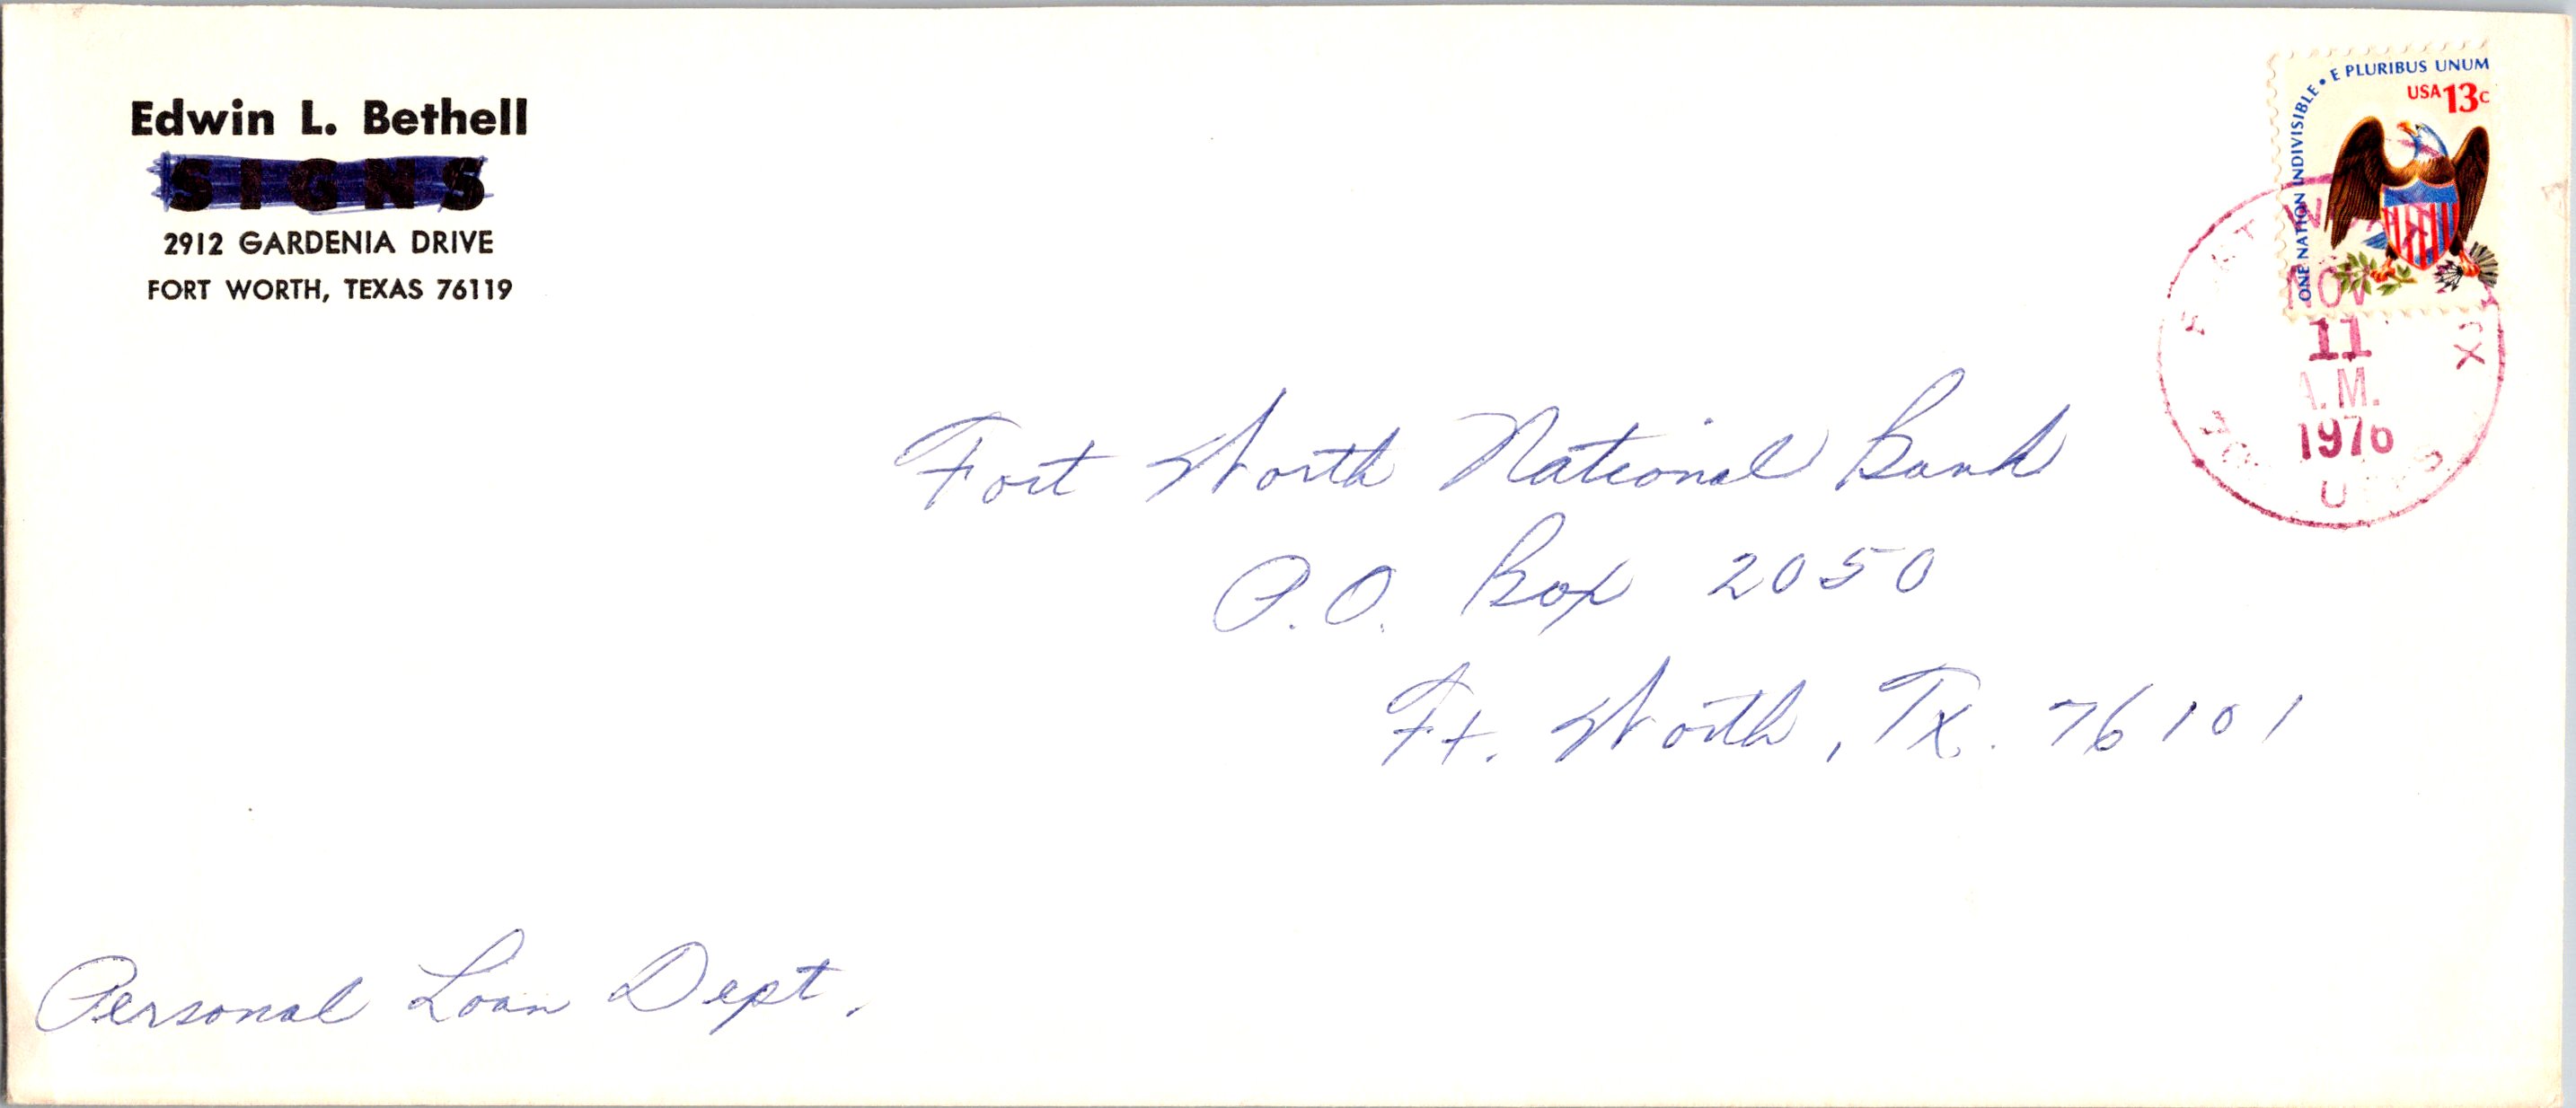 Edwin L. Bethell
SIGNS
2912 GARDENIA DRIVE
FORT WORTH, TEXAS 76119
ONE NATION INDIVISIBLE • E PLURIBUS UNUM
USA 13c
NOV
11
A.M.
1976
TX
Fort Worth National Bank
P.O. Box 2050
Ft. Worth, Tx. 76101
Personal Loan Dept.